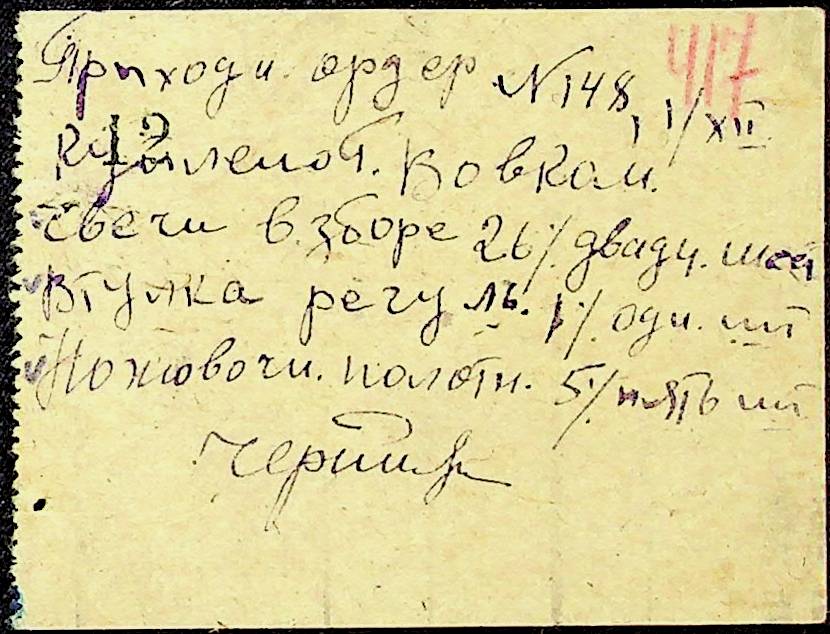 417
Приходн. ордер №148
1/XII
Вовком.
Свечи в зборе 26/. двадц. шес
Втулка регуль. 1/. оди. шт
Ножовочн. полотн. 5/. пять шт